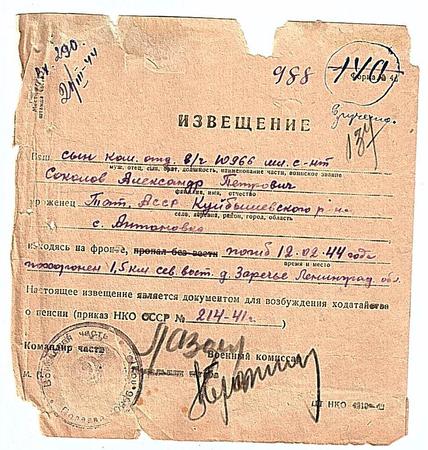 290.
21/III-44
988
140
Форма № 4
Вручено.
137
ИЗВЕЩЕНИЕ
Ваш сын ком. отд. в/ч 10966 мл. с-нт
муж, отец, сын, брат, должность, наименование части, воинское звание
Соколов Александр Петрович
фамилия, имя, отчество
уроженец Тат. АССР Куйбышевского р-на
село, деревня, район, город, область
с. Антоновка
находясь на фронте, пропал без вести погиб 12.02.44 года
время и место
похоронен 1,5 км сев. вост. д. Заречье Ленинград. обл.
Настоящее извещение является документом для возбуждения ходатайства
о пенсии (приказ НКО СССР № 214-41г)
Командир части
Военный комиссар
М. П.
Войсковая часть
Полевая